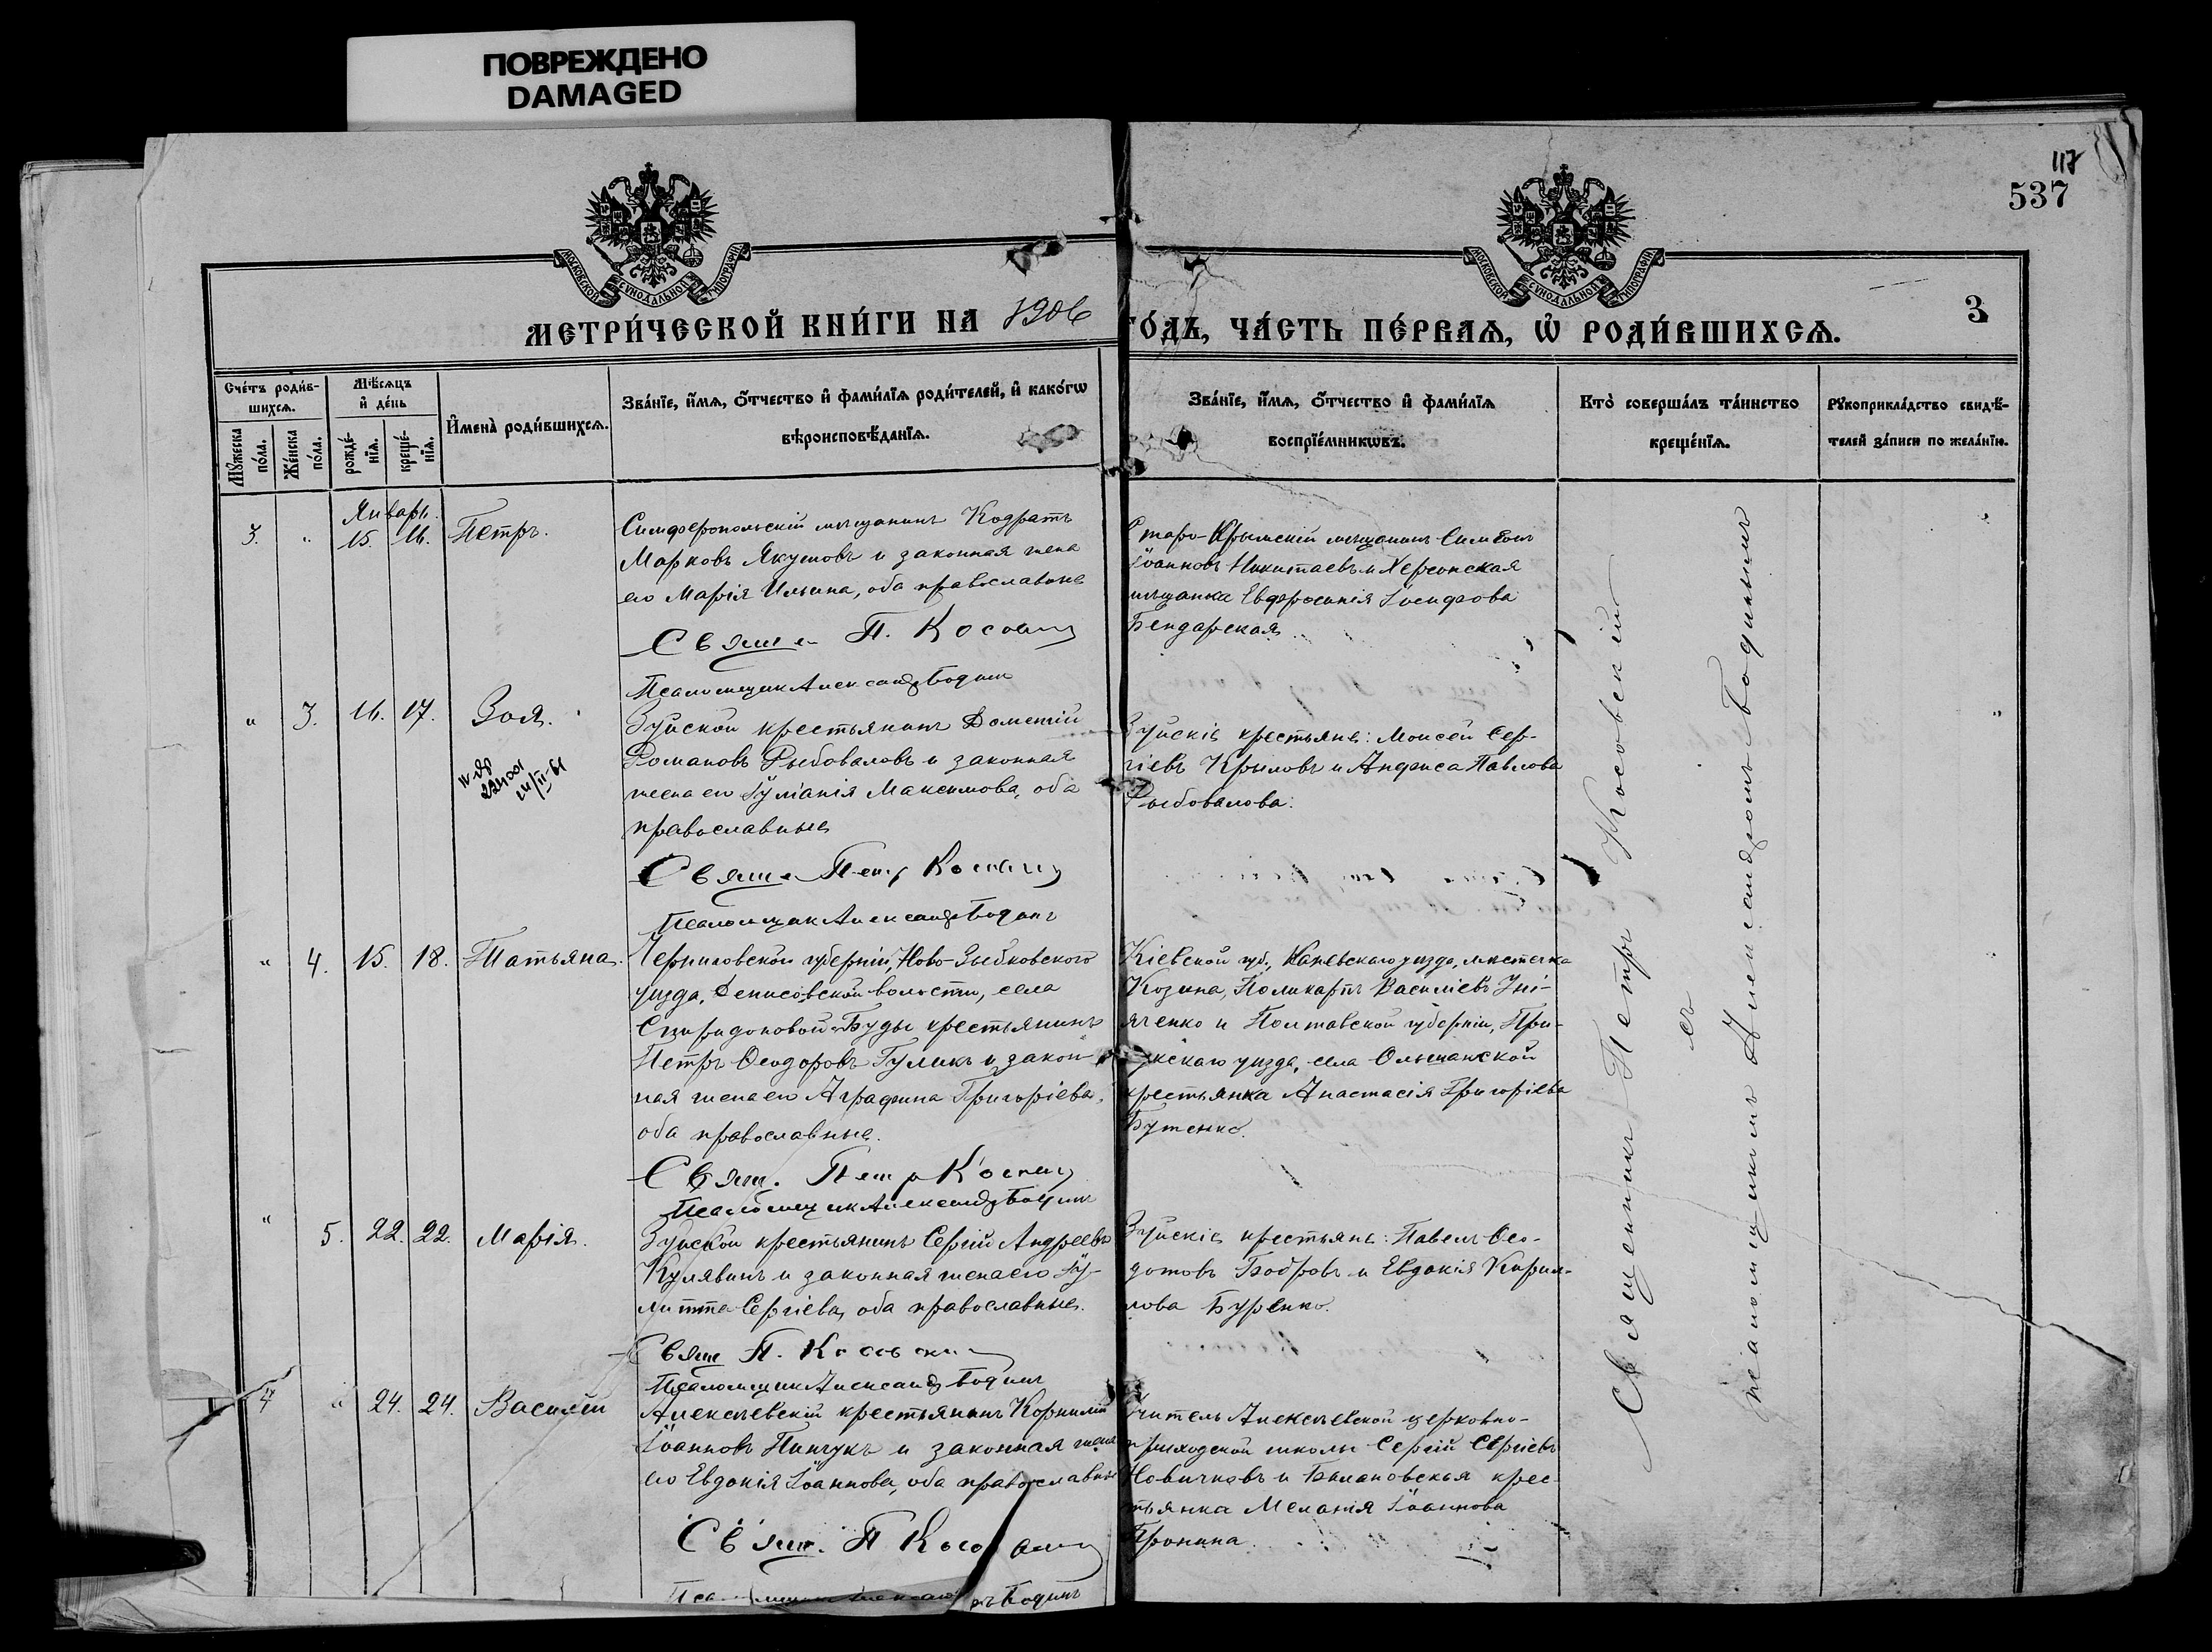 ПОВРЕЖДЕНО
DAMAGED
117
537
МОСКОВСКОЙ СѴНОДАЛЬНОЙ ТИПОГРАФІИ
МОСКОВСКОЙ СѴНОДАЛЬНОЙ ТИПОГРАФІИ
3
МЕТРИ́ЧЕСКОЙ КНИ́ГИ НА 1906
ГО́ДЪ, ЧА́СТЬ ПЕ́РВАѦ, Ѡ҆ РОДИ́ВШИХСѦ.
Сче́тъ роди́в-
шихсѧ.
Мꙋ́жеска по́ла.
Же́нска по́ла.
Мѣ́сѧцъ
и҆ де́нь
рожде́-
нїѧ.
креще́-
нїѧ.
И҆мена̀ роди́вшихсѧ.
Зва́нїе, и҆́мѧ, ѻ҆́тчество и҆ фами́лїѧ роди́телей, и҆ како́гѡ
вѣроисповѣ́данїѧ.
Зва́нїе, и҆́мѧ, ѻ҆́тчество и҆ фами́лїѧ
воспрїе́мникѡвъ.
Кто̀ соверша́лъ та́инство
креще́нїѧ.
Рꙋкоприкла́дство свидѣ́-
телей за́писи по жела́нїю.
Январь.
3. " 15. 16. Петръ.
Симферопольскій мѣщанинъ Кодратъ
Марковъ Якушовъ и законная жена
его Марія Ильина, оба православные
Свящ. П. Косовскій
Псаломщик Александръ Бодинъ
Старо-Крымскій мѣщанинъ Симеонъ
Іоанновъ Никитаевъ и Херсонская
мѣщанка Евфросинія Іосифова
Бендарская.
" 3. 16. 17. Зоя.
24/II-61
Зуйской крестьянинъ Дометій
Романовъ Рыбоваловъ и законная
жена его Іуліанія Максимова, оба
православные
Свящ. Петръ Косовскій
Псаломщик Александръ Бодинъ
Зуйскіе крестьяне: Моисей Сер-
гіевъ Крыловъ и Анфиса Павлова
Рыбовалова.
" 4. 15. 18. Татьяна.
Черниговской губерніи, Ново-Зыбковского
уѣзда, Денисовской волости, села
Спиридоновой-Буды крестьянинъ
Петръ Ѳеодоровъ Гуликъ и закон-
ная жена его Аграфина Григоріева,
оба православные.
Свящ. Петръ Косовскій
Псаломщик Александръ Бодинъ
Кіевской губ., Каневскаго уѣзда, мѣстечка
Козина, Поликарпъ Василіевъ
и Полтавской губерніи, При-
лукскаго уѣзда, села Ольшанской
крестьянка Анастасія Григоріева
Бутенко.
" 5. 22. 22. Марія.
Зуйской крестьянинъ Сергій Андреевъ
Кулявинъ и законная жена его Іу-
литта Сергіева, оба православные.
Свящ П. Косовскій
Псаломщик Александръ Бодинъ
Зуйскіе крестьяне: Павелъ Ѳео-
дотовъ Бобровъ и Евдокія Кирил-
лова Буренко.
4 " 24. 24. Василій
Алексѣевскій крестьянинъ Корнилій
Іоанновъ Пинчукъ и законная жена
его Евдокія Іоаннова, оба православные
Свящ. П Косовскій
Псаломщик Александръ Бодинъ
Учитель Алексѣевской церковно-
приходской школы Сергій Сергіевъ
Новичковъ и крес-
тьянка Меланія Іоаннова
Пронина.
Священникъ Петръ Косовскій
съ
псаломщикомъ Александромъ Бодинымъ